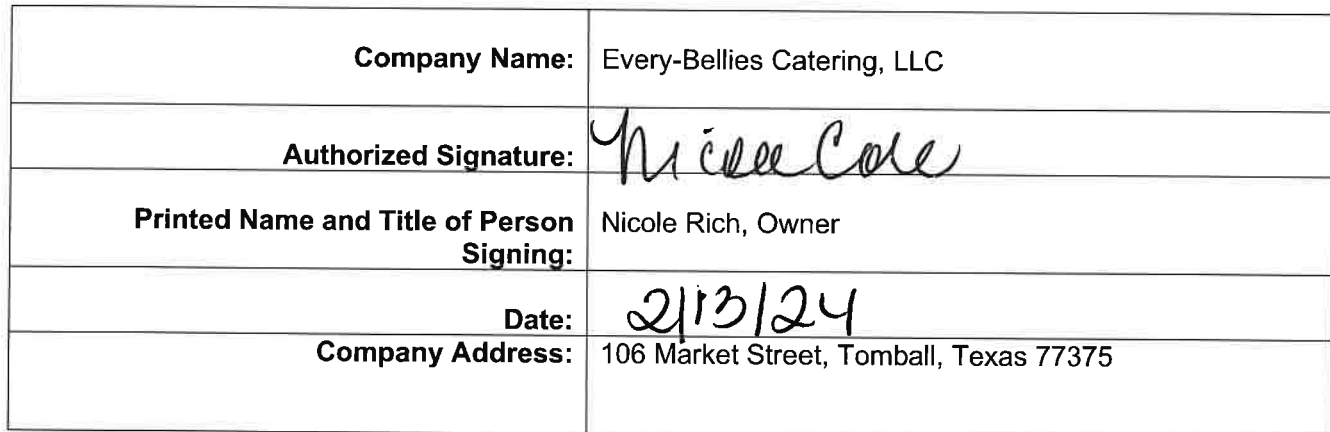 Company Name: Every-Bellies Catering, LLC
Authorized Signature: Nicole Cole
Printed Name and Title of Person Nicole Rich, Owner
Signing:
Date: 2/13/24
Company Address: 106 Market Street, Tomball, Texas 77375